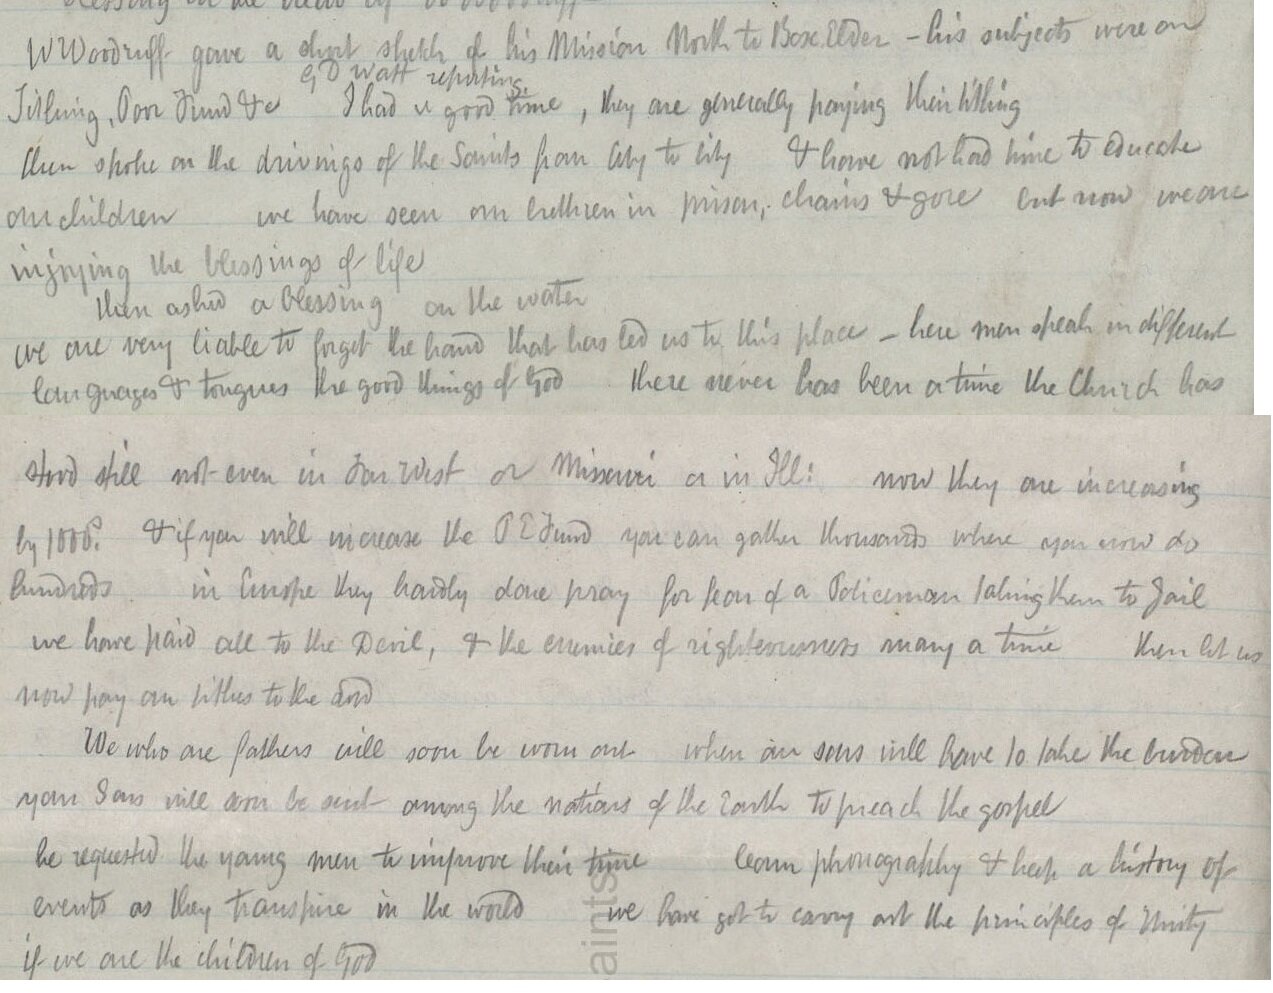 blessing
W Woodruff gave a short sketch of his Mission North to Box Elder – his subjects were on
G D Watt reporting
Tithing, Poor Fund &c I had a good time, they are generally paying their tithing
then spoke on the drivings of the Saints from City to City & have not had time to educate
our children we have seen our brethren in prison, chains & gore but now we are
injoying the blessings of life
then asked a blessing on the water
we are very liable to forget the hand that has led us to this place – here men speak in different
languages & tongues the good things of God there never has been a time the Church has
stood still not even in Far West or Missouri or in Ill: now they are increasing
by 1000s. & if you will increase the P E Fund you can gather thousands where you now do
hundreds in Europe they hardly dare pray for fear of a Policeman taking them to Jail
we have paid all to the Devil, & the enemies of righteousness many a time then let us
now pay our tithes to the Lord
We who are fathers will soon be worn out when our sons will have to take the burden
your Sons will soon be sent among the nations of the Earth to preach the gospel
he requested the young men to improve their time learn phonography & keep a history of
events as they transpire in the world we have got to carry out the principles of Unity
if we are the children of God
aints